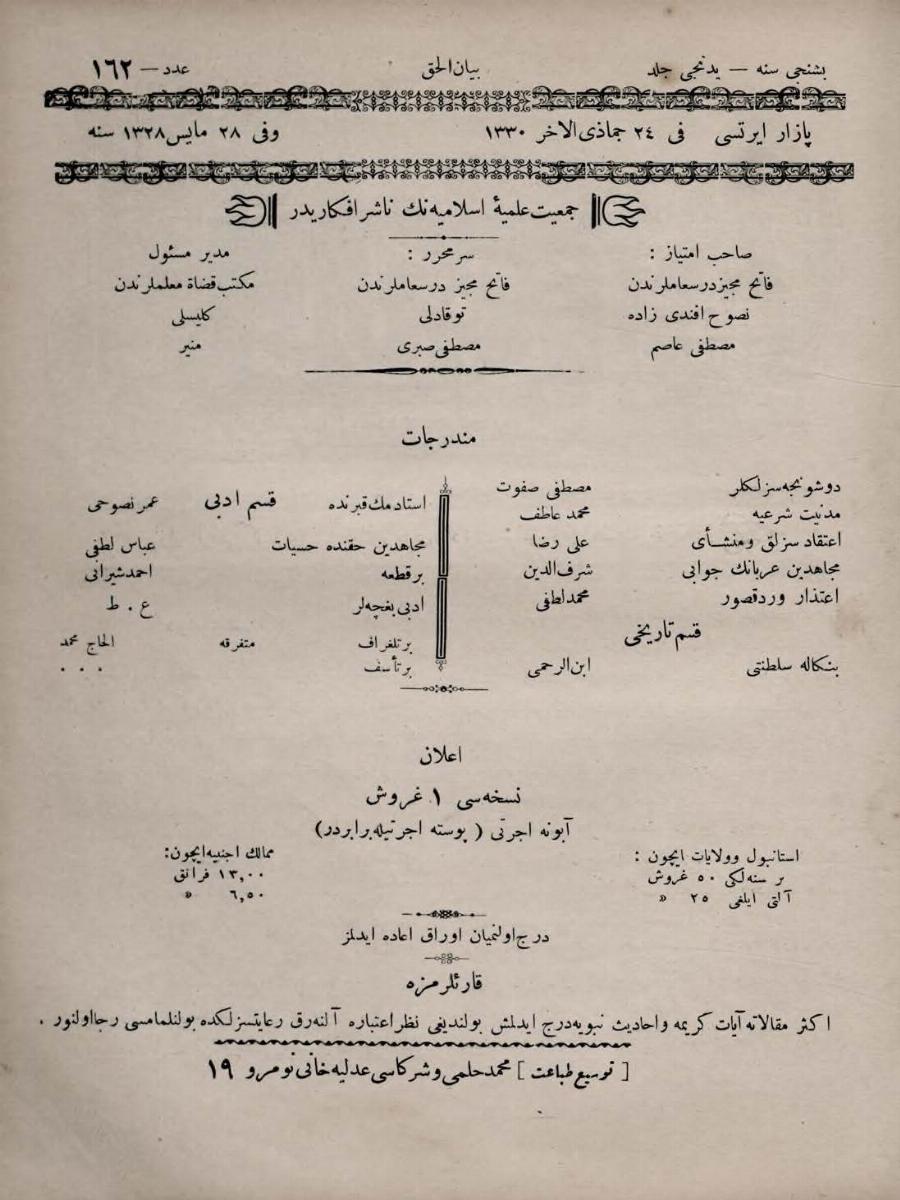 بشنجی سنه — یدنجی جلد بیان الحق عدد — ١٦٢
پازار ایرتسی فی ٢٤ جماذی الاخر ١٣٣٠ وفی ٢٨ مایس ١٣٢٨ سنه
جمعیت علمیهٔ اسلامیه نك ناشر افکاریدر
صاحب امتیاز : سرمحرر : مدیر مسئول
فاتح مجیز درسعاملرندن فاتح مجیز درسعاملرندن مکتب قضاة معلملرندن
نصوح افندی زاده توقادلی کلیسلی
مصطفی عاصم مصطفی صبری منیر
مندرجات
دوشونجه سزلکلر مصطفی صفوت
مدنیت شرعیه محمد عاطف
اعتقاد سزلق ومنشأی علی رضا
مجاهدین عربانك جوابی شرف الدین
اعتذار وردقصور محمد لطفی
قسم تاریخی
بنکاله سلطنتی ابن الرحمی
قسم ادبی
استادمك قبرنده عمر نصوحی
مجاهدین حقنده حسیات عباس لطفی
برقطعه احمد شیرانی
ادبی بغچه لر ع . ط
متفرقه
برتلغراف الحاج محمد
برتأسف . . .
اعلان
نسخه سی ١ غروش
آبونه اجرتی ( پوسته اجرتیله برابردر)
استانبول وولایات ایچون :
بر سنه لکی ٥٠ غروش
آلتی ایلغی ٢٥ »
ممالك اجنبیه ایچون:
١٣,٠٠ فرانق
٦,٥٠ »
درج اولنمیان اوراق اعاده ایدلمز
قارئلرمزه
اکثر مقالاته آیات کریمه واحادیث نبویه درج ایدلمش بولندیغی نظر اعتباره آلنه رق رعایتسزلکده بولنلمامسی رجا اولنور .
[ توسیع طباعت ] محمد حلمی وشرکاسی عدلیه خانی نومرو ١٩